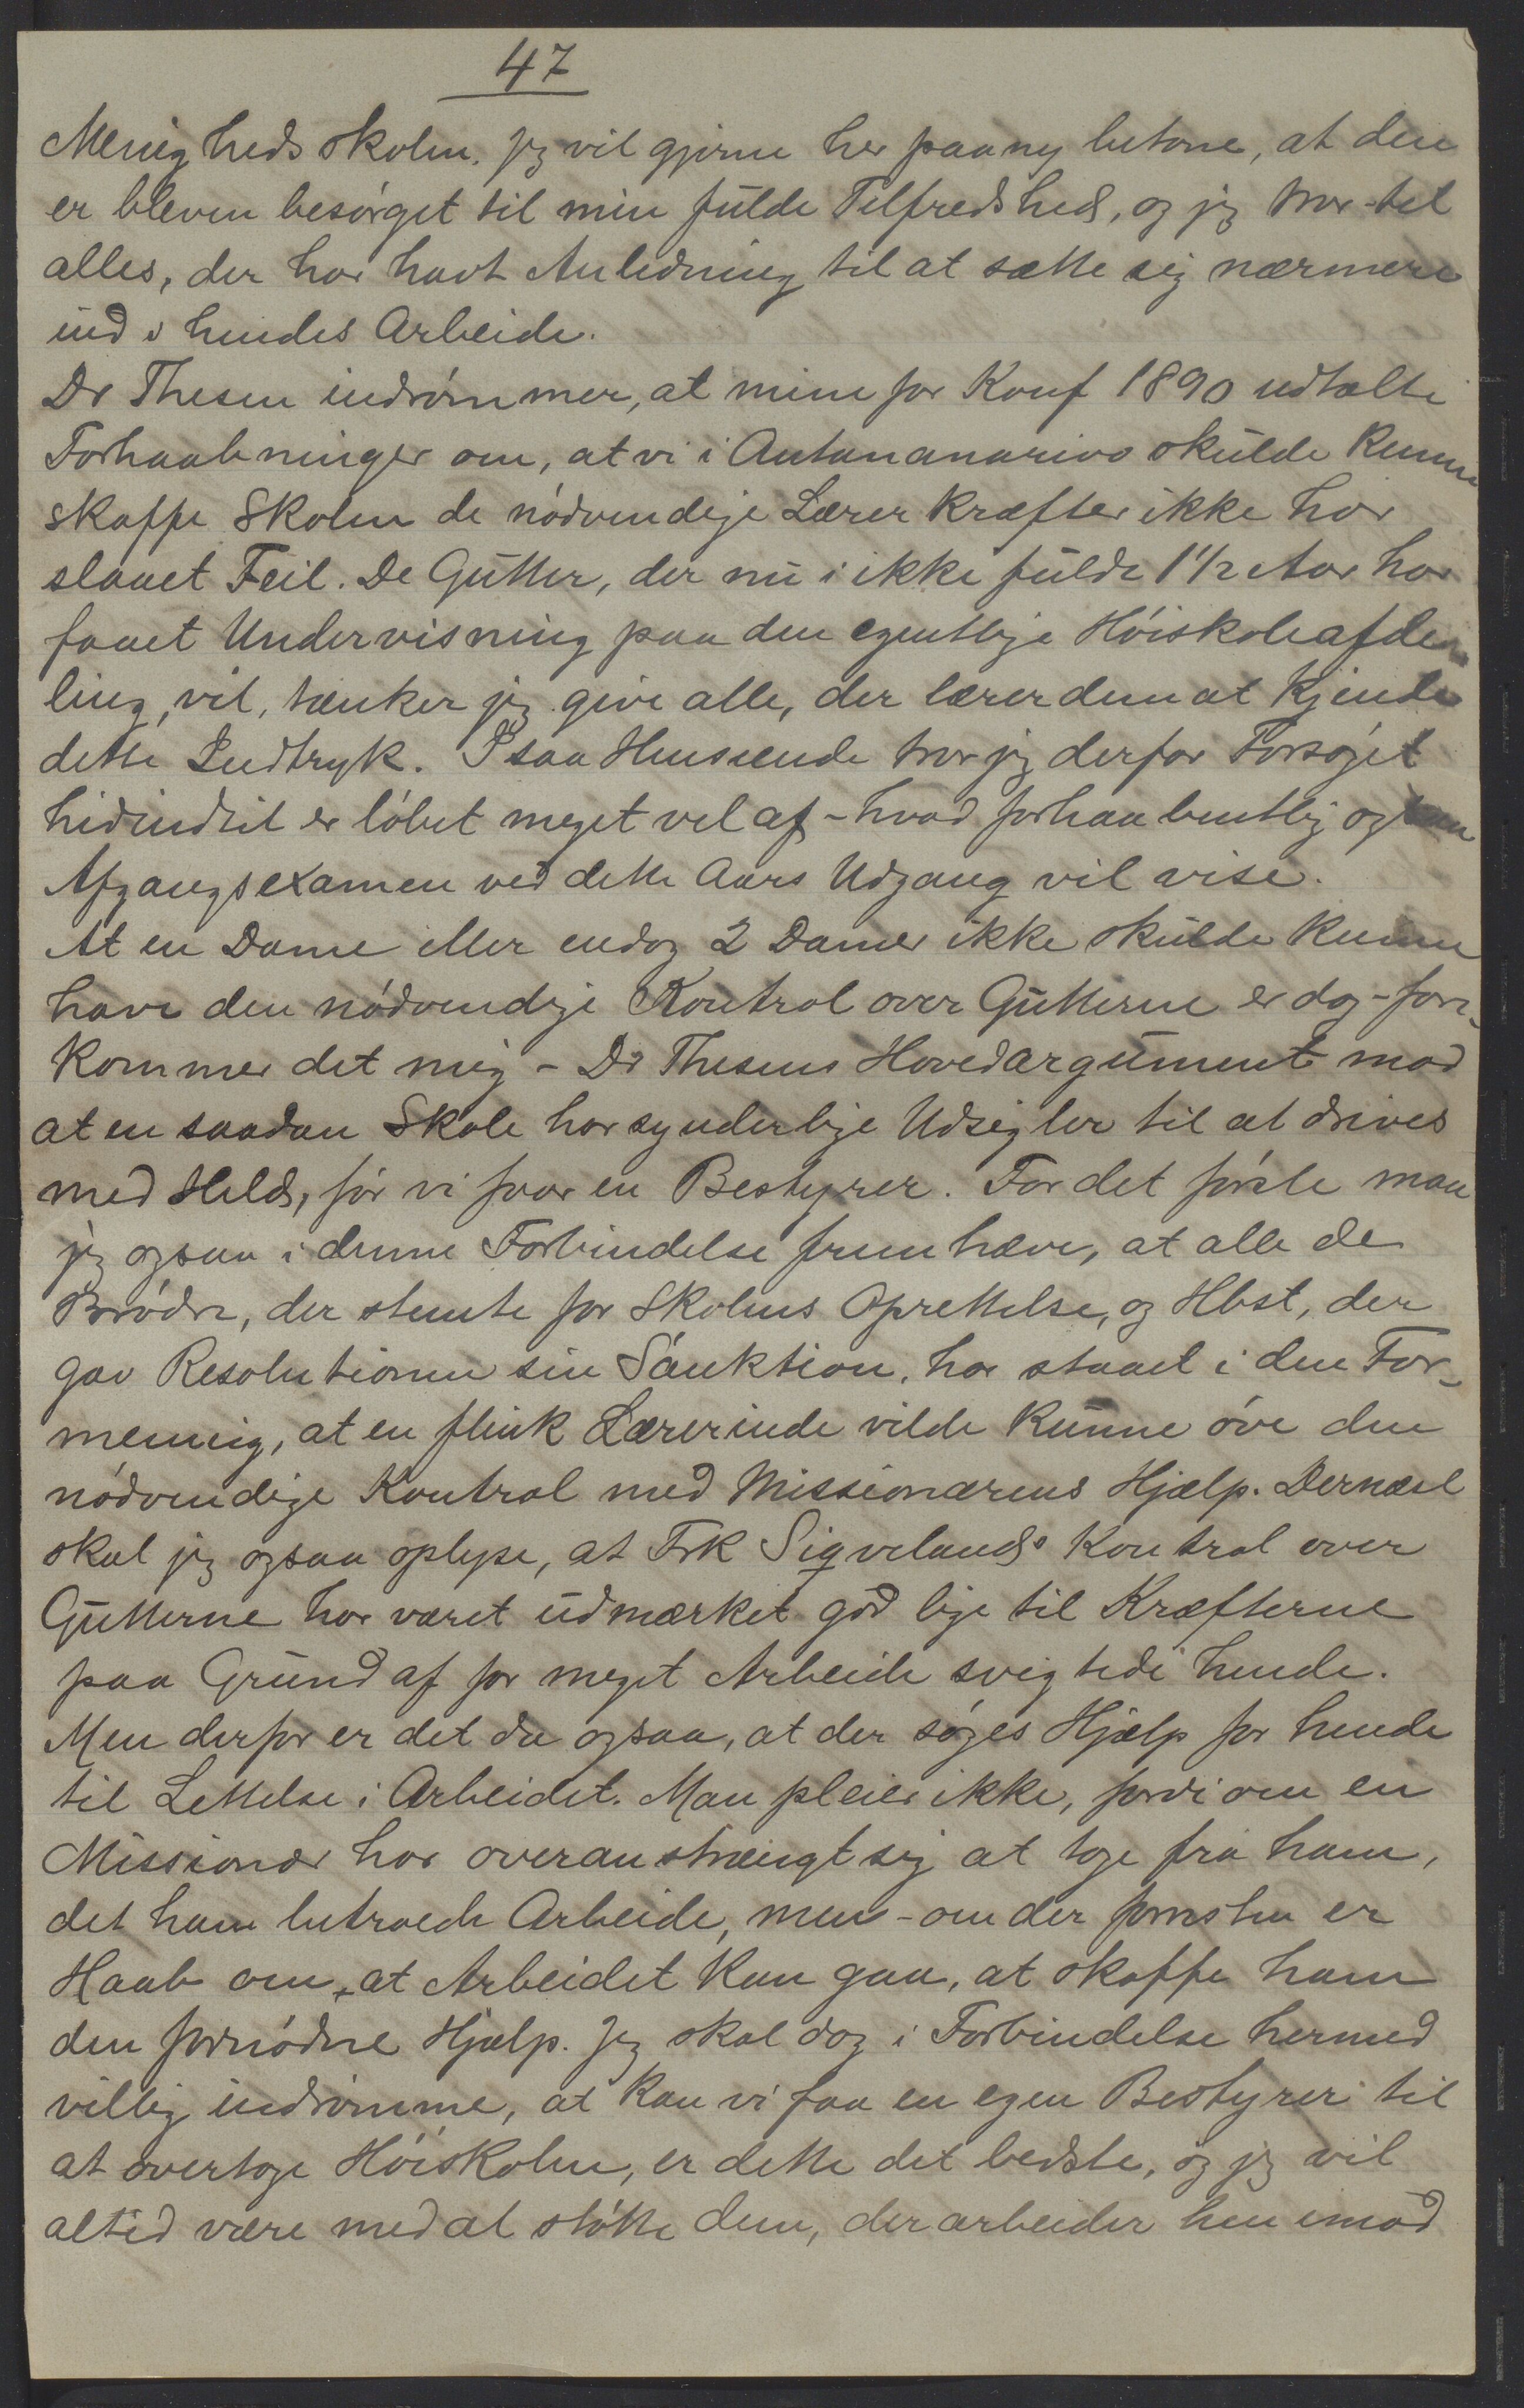 47
Menigheds skolen. Jeg vil gjerne her paany betone, at den
er bleven besørget til min fulde Tilfredshed, og jeg tror - til
alles, der har havt Anledning til at sætte sig nærmere
ind i hendes Arbeide.
Dr Thesen indrømmer, at mine for Konf 1890 udtalte
Forhaabninger om, at vi i Antananarivo skulde kunne
skaffe Skolen de nødvendige Lærer kræfter ikke har
slaaet Feil. De Gutter, der nu i ikke fulde 1 1/2 Aar har
faaet Undervisning paa den egentlige Høiskoleafde-
ling, vil, tænker jeg give alle, der lærer dem at kjende
dette Indtryk. I saa Henseende tror jeg derfor Forsøget
hidindtil er løbet meget vel af - hvad forhaabentlig ogsaa
Afgangsexamen ved dette Aars Udgang vil vise.
At en Dame eller endog 2 Damer ikke skulde kunne
have den nødvendige Kontrol over Gutterne er dog - fore-
kommer det mig - Dr Thesens Hovedargument mod
at en saadan Skole har synderlige Udsigter til at drives
med Held, før vi faar en Bestyrer. For det første maa
jeg ogsaa i denne Forbindelse fremhæve, at alle de
Brødre, der stemte for Skolens Oprettelse, og Hbst, der
gav Resolutionen sin Sanktion, har staaet i den For-
mening, at en flink Lærerinde vilde kunne øve den
nødvendige Kontrol med Missionærens Hjælp. Dernæst
skal jeg ogsaa oplyse, at Frk Sigvelands Kontrol over
Gutterne har været udmærket god lige til Kræfterne
paa Grund af for meget Arbeide svigtede hende.
Men derfor er det da ogsaa, at der søges Hjælp for hende
til Lettelse i Arbeidet. Man pleier ikke, fordi om en
Missionær har overanstrængt sig at tage fra ham,
det ham betroede Arbeide, men - om der forresten er
Haab om, at Arbeidet kan gaa, at skaffe ham
den fornødne Hjælp. Jeg skal dog i Forbindelse hermed
villig indrømme, at kan vi faa en egen Bestyrer til
at overtage Høiskolen, er dette det bedste, og jeg vil
altid være med at støtte dem, der arbeider hen imod